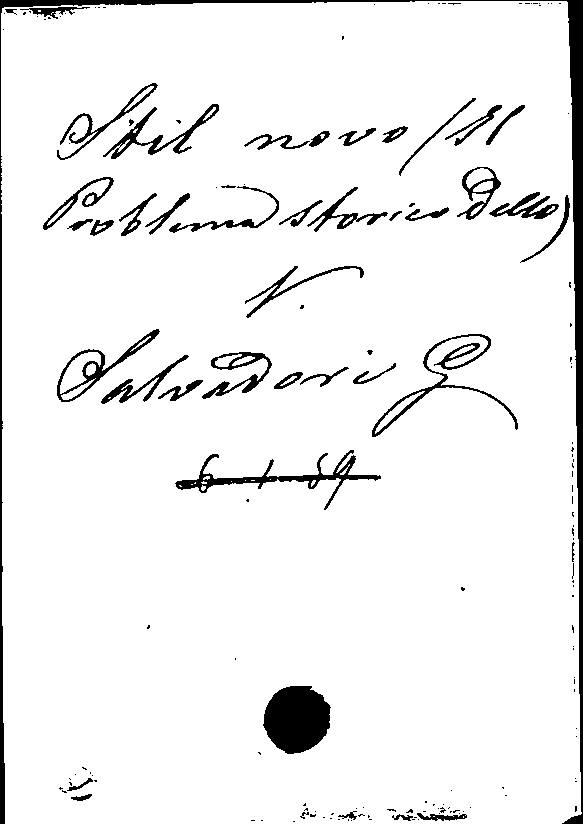 Stil novo (Il
Problema storico dello)
V.
Salvadori G
6. 1. 59